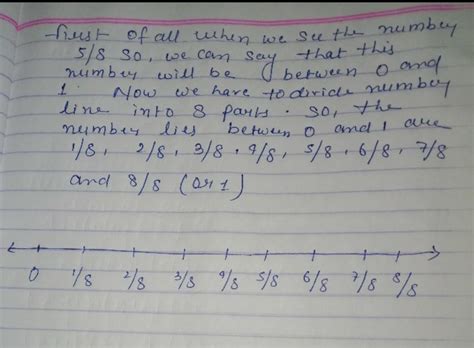 first of all when we see the number
5/8 so, we can say that this
number will be between 0 and
1. Now we have to divide number
line into 8 parts. so, the
number lies between 0 and 1 are
1/8, 2/8, 3/8, 4/8, 5/8, 6/8, 7/8
and 8/8 (or 1)
0 1/8 2/8 3/8 4/8 5/8 6/8 7/8 8/8